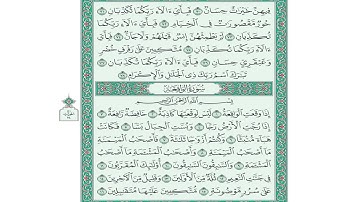 فِيهِنَّ خَيْرَٰتٌ حِسَانٌ ۝٧٠ فَبِأَيِّ ءَالَآءِ رَبِّكُمَا تُكَذِّبَانِ ۝٧١
حُورٌ مَّقْصُورَٰتٌ فِي ٱلْخِيَامِ ۝٧٢ فَبِأَيِّ ءَالَآءِ رَبِّكُمَا
تُكَذِّبَانِ ۝٧٣ لَمْ يَطْمِثْهُنَّ إِنسٌ قَبْلَهُمْ وَلَا جَآنٌّ ۝٧٤
فَبِأَيِّ ءَالَآءِ رَبِّكُمَا تُكَذِّبَانِ ۝٧٥ مُتَّكِـِٔينَ عَلَىٰ رَفْرَفٍ خُضْرٍ
وَعَبْقَرِيٍّ حِسَانٍ ۝٧٦ فَبِأَيِّ ءَالَآءِ رَبِّكُمَا تُكَذِّبَانِ ۝٧٧
تَبَٰرَكَ ٱسْمُ رَبِّكَ ذِي ٱلْجَلَٰلِ وَٱلْإِكْرَامِ ۝٧٨
سُورَةُ الوَاقِعَةِ
بِسْمِ ٱللَّهِ ٱلرَّحْمَٰنِ ٱلرَّحِيمِ
إِذَا وَقَعَتِ ٱلْوَاقِعَةُ ۝١ لَيْسَ لِوَقْعَتِهَا كَاذِبَةٌ ۝٢ خَافِضَةٌ رَّافِعَةٌ ۝٣
إِذَا رُجَّتِ ٱلْأَرْضُ رَجًّا ۝٤ وَبُسَّتِ ٱلْجِبَالُ بَسًّا ۝٥ فَكَانَتْ
هَبَآءً مُّنۢبَثًّا ۝٦ وَكُنتُمْ أَزْوَٰجًا ثَلَٰثَةً ۝٧ فَأَصْحَٰبُ ٱلْمَيْمَنَةِ
مَآ أَصْحَٰبُ ٱلْمَيْمَنَةِ ۝٨ وَأَصْحَٰبُ ٱلْمَشْـَٔمَةِ مَآ أَصْحَٰبُ
ٱلْمَشْـَٔمَةِ ۝٩ وَٱلسَّٰبِقُونَ ٱلسَّٰبِقُونَ ۝١٠ أُو۟لَٰٓئِكَ ٱلْمُقَرَّبُونَ ۝١١
فِي جَنَّٰتِ ٱلنَّعِيمِ ۝١٢ ثُلَّةٌ مِّنَ ٱلْأَوَّلِينَ ۝١٣ وَقَلِيلٌ مِّنَ ٱلْءَاخِرِينَ ۝١٤
عَلَىٰ سُرُرٍ مَّوْضُونَةٍ ۝١٥ مُّتَّكِـِٔينَ عَلَيْهَا مُتَقَٰبِلِينَ ۝١٦